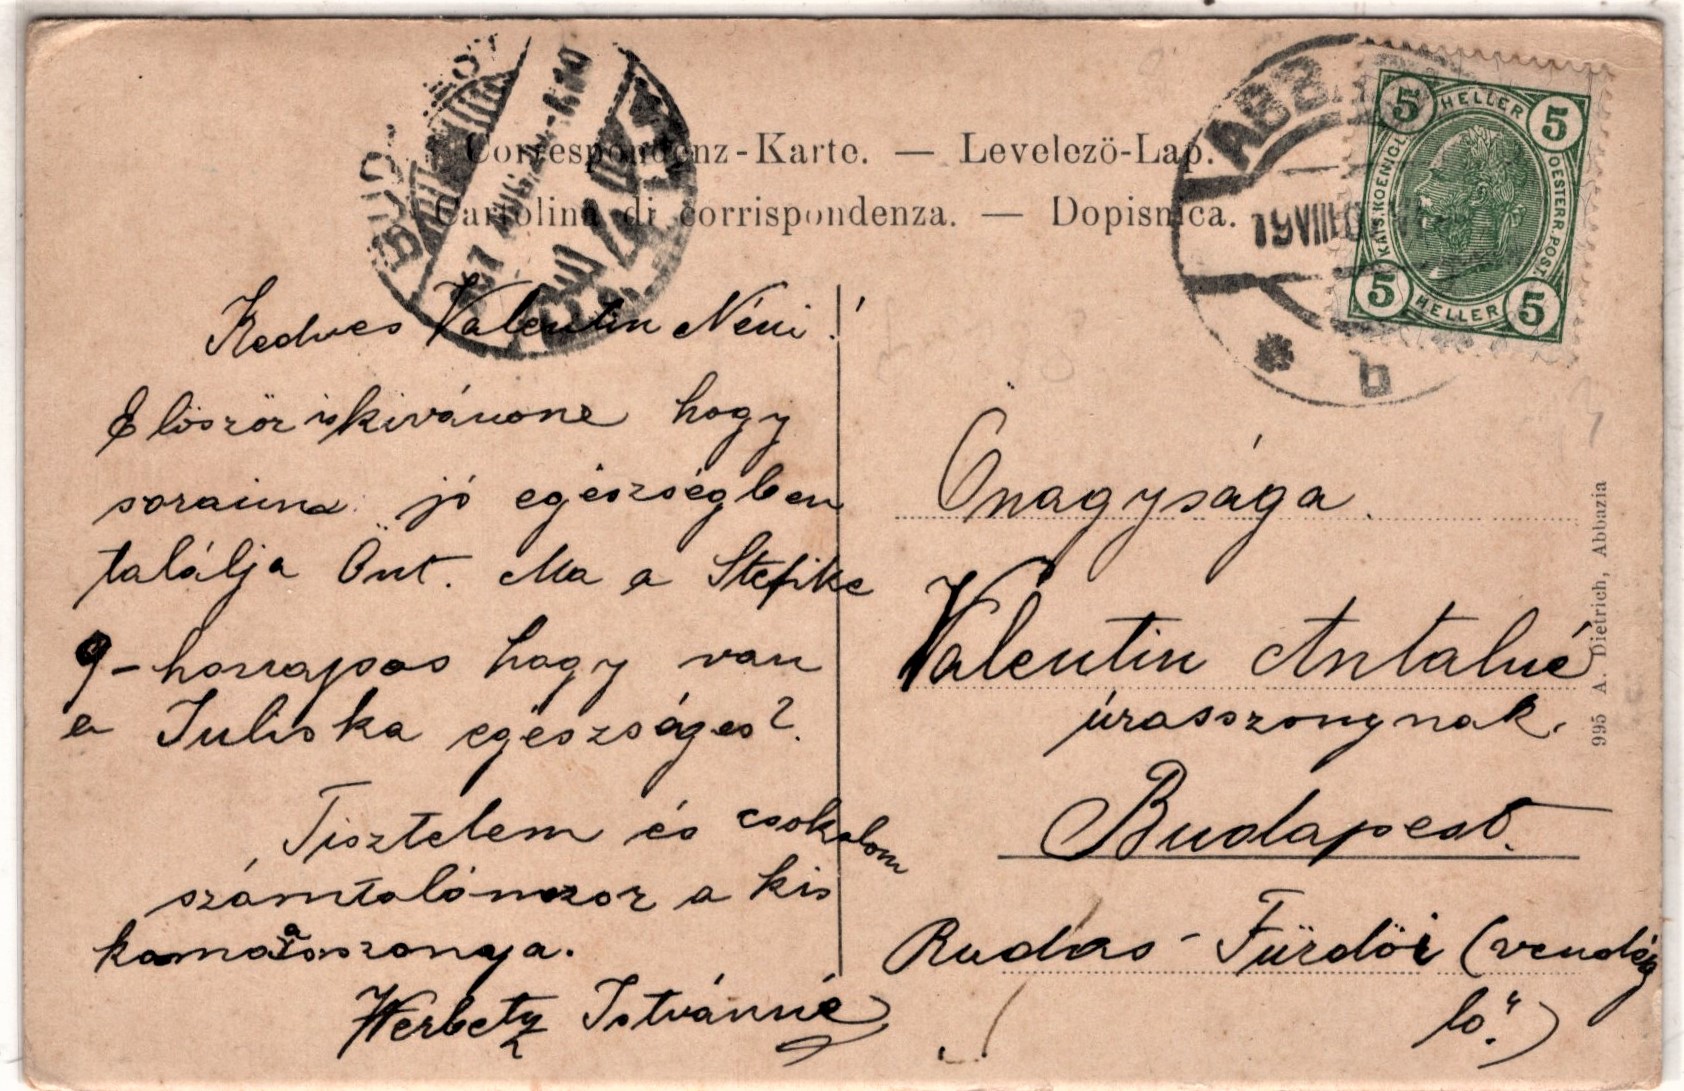 Correspondenz-Karte. — Levelező-Lap.
Cartolina di corrispondenza. — Dopisnica.
ABBA
19 VIII
b
5 HELLER 5
KAIS. KOENIGL. OESTERR. POST.
5 HELLER 5
Kedves Valentin Néni!
Először is kivánone hogy
soraima jó egészségben
találja Önt. Ma a Stefike
hogy van
a Juliska egészséges?
Tisztelem és csokolom
számtalónszor a kis
Herbetz Istvánné
Önagysága
Valentin Antalné
úrasszonynak.
Budapest.
Rudas-Fürdöi (vendég
lö.")
995 A. Dietrich, Abbazia